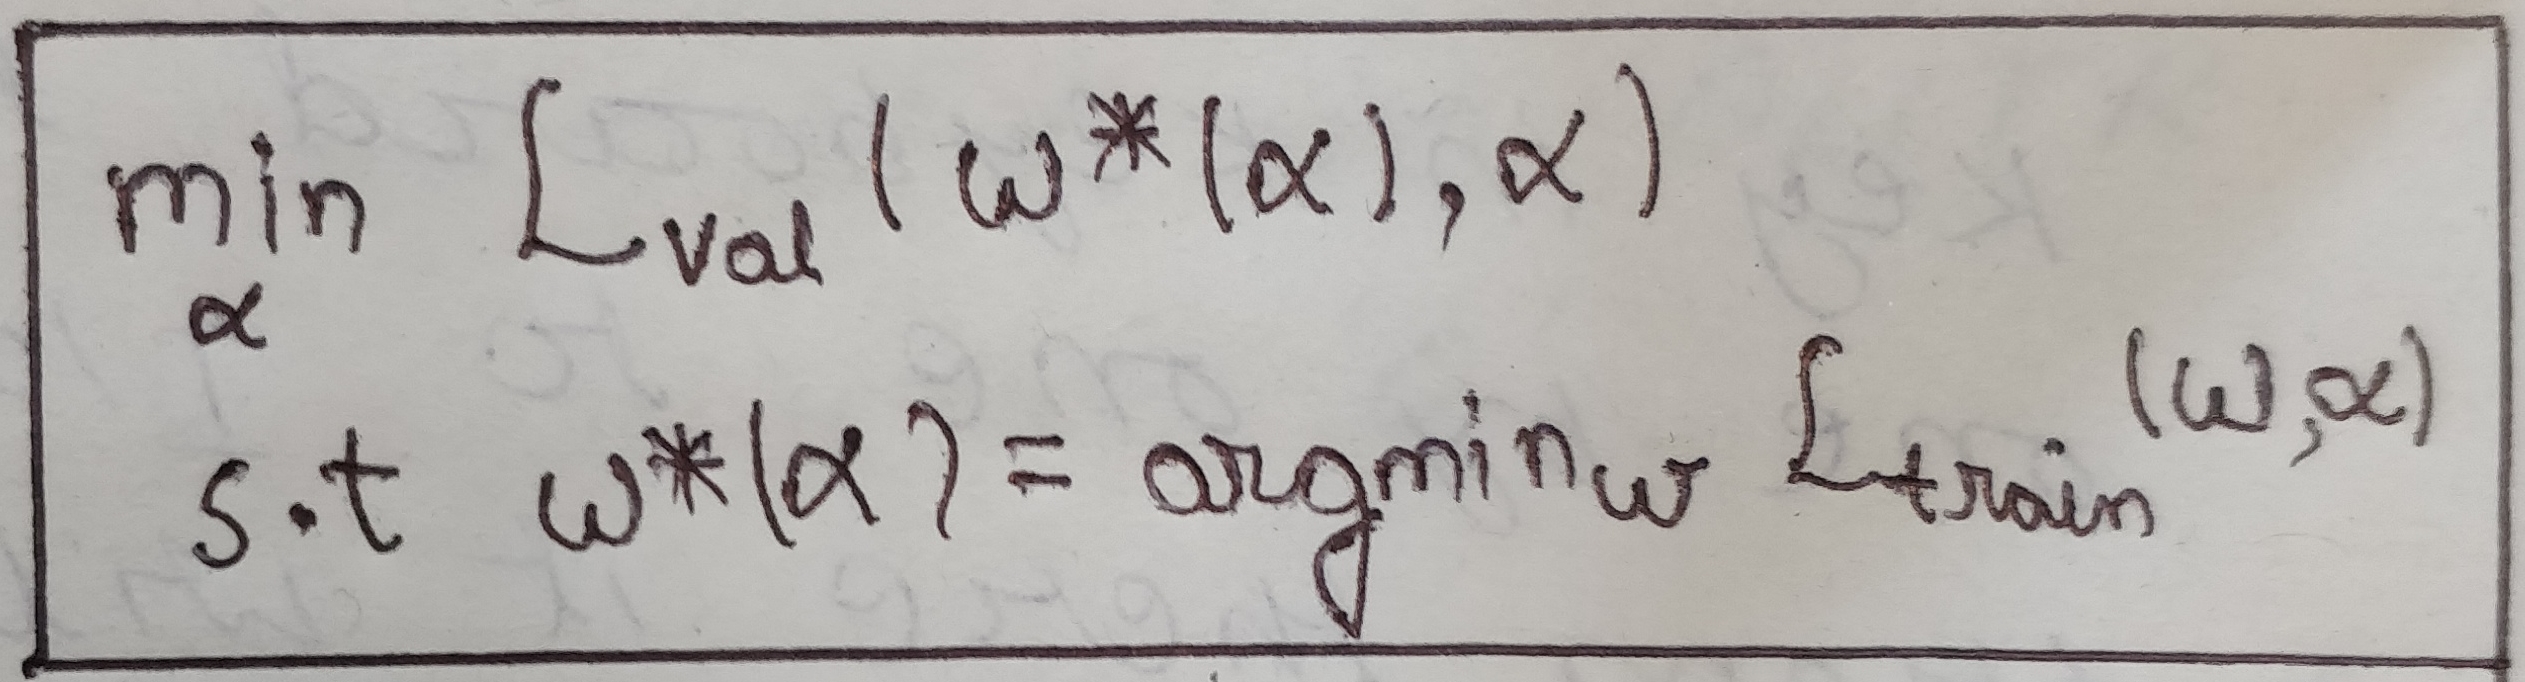 min L_val (ω*(α), α)
α
s.t ω*(α) = argmin_ω L_train (ω, α)